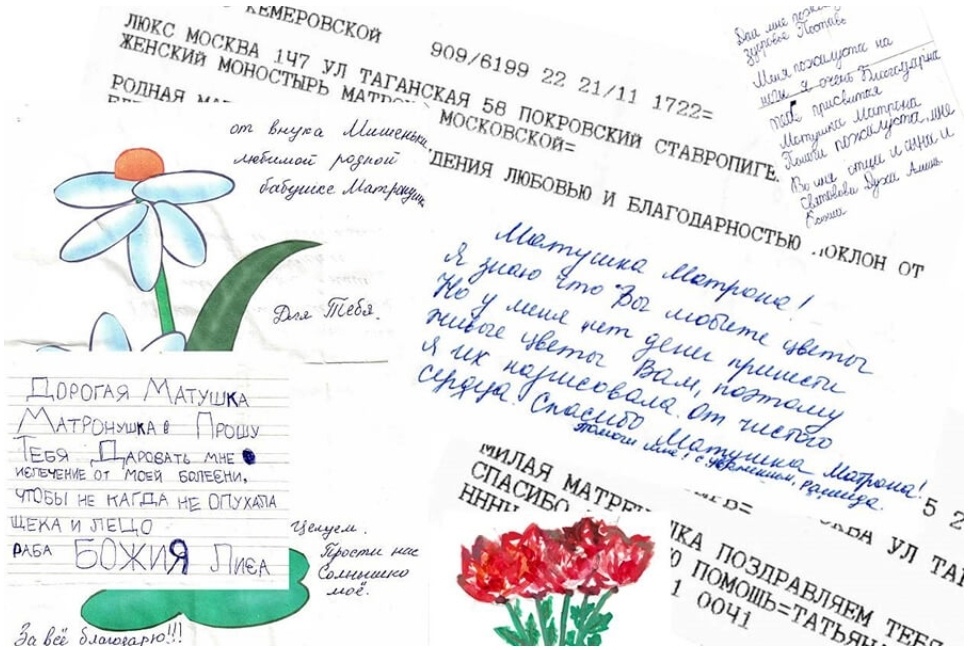 КЕМЕРОВСКОЙ 909/6199 22 21/11 1722=
ЛЮКС МОСКВА 147 УЛ ТАГАНСКАЯ 58 ПОКРОВСКИЙ СТАВРОПИГЕ
ЖЕНСКИЙ МОНОСТЫРЬ МАТРО МОСКОВСКОЙ=
РОДНАЯ МА
ДЕНИЯ ЛЮБОВЬЮ И БЛАГОДАРНОСТЬЮ ПОКЛОН ОТ
Дай мне
здоровье Поставь
Меня пожалуста на
ноги я очень Благодарна
Матушка Матрона
Помоги пожалуста мне
Во имя отца и сына и
Святова Духа Аминь
Ксюша
от внука Мишеньки
любимой родной
бабушке Матронушке
Для Тебя.
Матушка Матрона!
Я знаю что Вы любите цветы
Но у меня нет денг принести
живые цветы Вам, поэтому
я их нарисовала. От чистого
сердца! Спасибо Матушка Матрона!
Помоги мне! с уважением, Рашида.
ДОРОГАЯ МАТУШКА
МАТРОНУШКА ПРОШУ
ТЕБЯ ДАРОВАТЬ МНЕ
ИСЛЕЧЕНИЕ ОТ МОЕЙ БОЛЕЗНИ,
ЧТОБЫ НЕ КАГДА НЕ ОПУХАЛА
ЩЕКА И ЛЕЦО
РАБА БОЖИЯ ЛИЗА
Целуем.
Прости нас
Солнышко
моё.
За всё благодарю!!!
5 2
КВА УЛ ТАГ
МИЛАЯ МАТРЕ ШКА ПОЗДРАВЛЯЕМ ТЕБЯ
СПАСИБО ПОМОЩЬ=ТАТЬЯН
НННН 1 0041